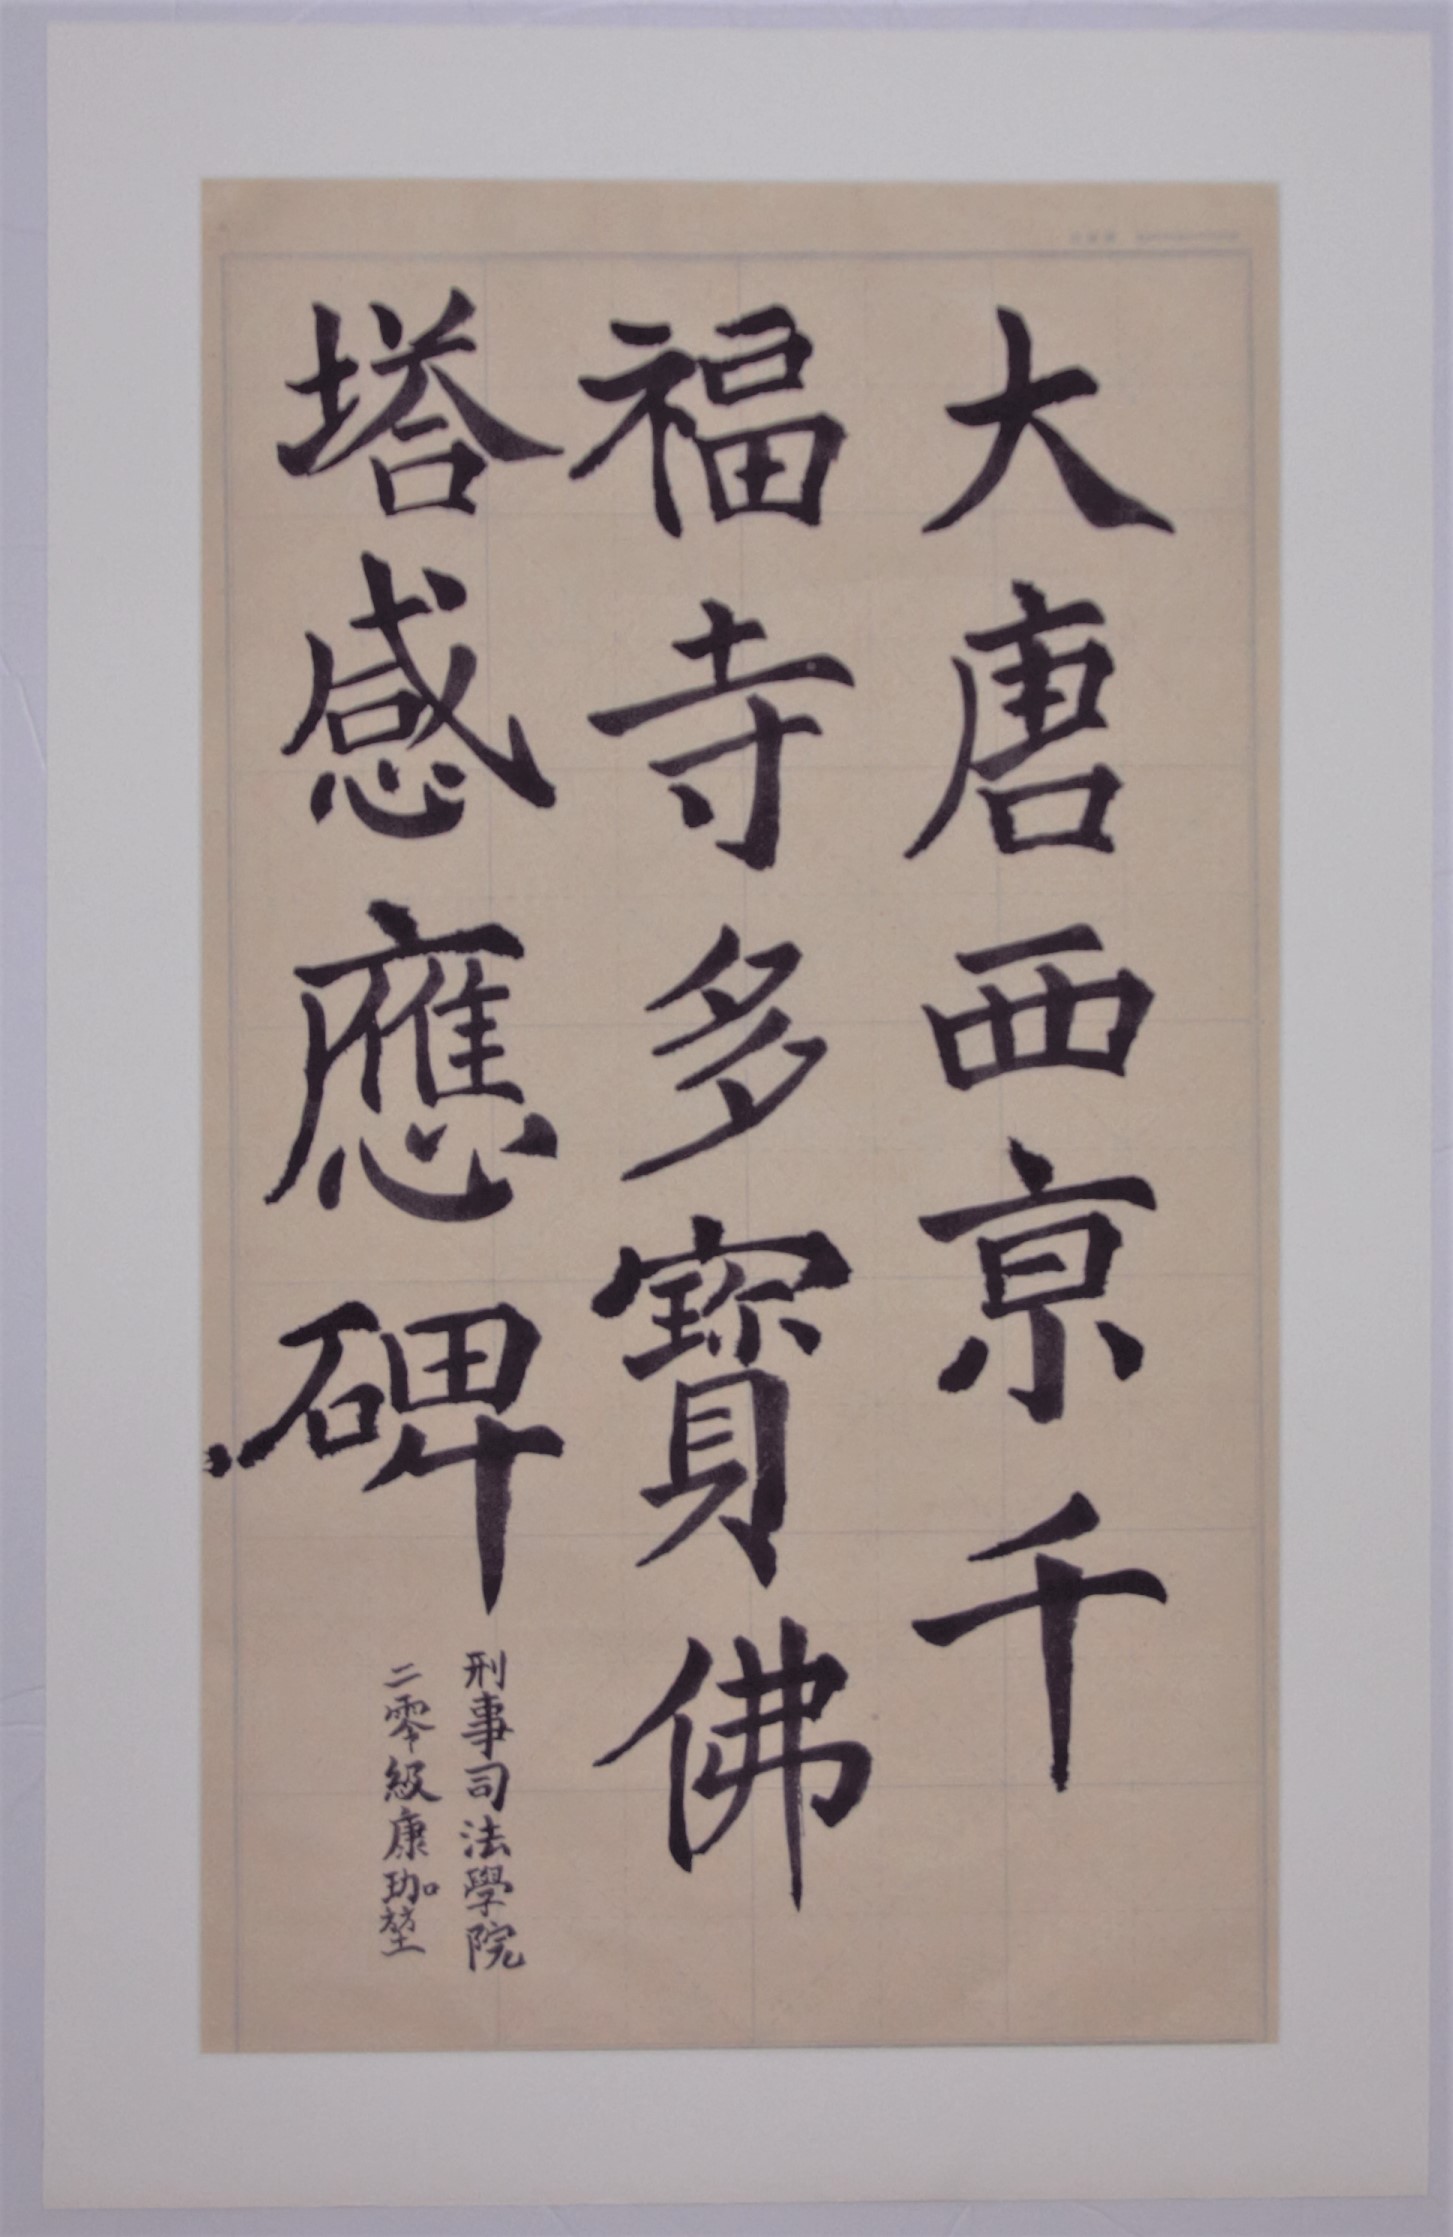 大唐西京千
福寺多寶佛
塔感應碑
刑事司法學院
二零級康珈堃